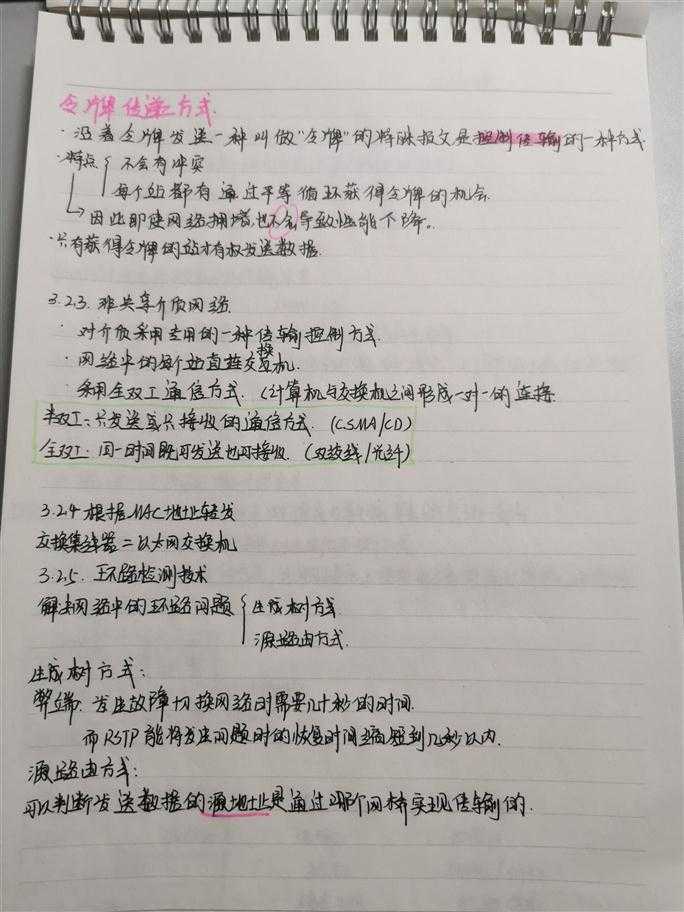 令牌传递方式
·沿着令牌发送一种叫做“令牌”的特殊报文是控制传输的一种方式
·特点 { 不会有冲突
每个站都有通过平等循环获得令牌的机会
→因此即使网络拥堵也不会导致性能下降。
·只有获得令牌的站才有权发送数据
3.2.3. 非共享介质网络
·对介质采用专用的一种传输控制方式
·网络中的每个站直连交换机.
·采用全双工通信方式.(计算机与交换机之间形成一对一的连接
半双工:只发送或只接收的通信方式.(CSMA/CD)
全双工:同一时间既可发送也可接收.(双绞线/光纤)
3.2.4 根据MAC地址转发
交换集线器=以太网交换机
3.2.5. 环路检测技术
解决网络中的环路问题 { 生成树方式
源路由方式.
生成树方式:
弊端:发生故障切换网络时需要几十秒的时间.
而RSTP能将发生问题时的恢复时间缩短到几秒以内.
源路由方式:
可以判断发送数据的源地址是通过哪个网桥实现传输的.